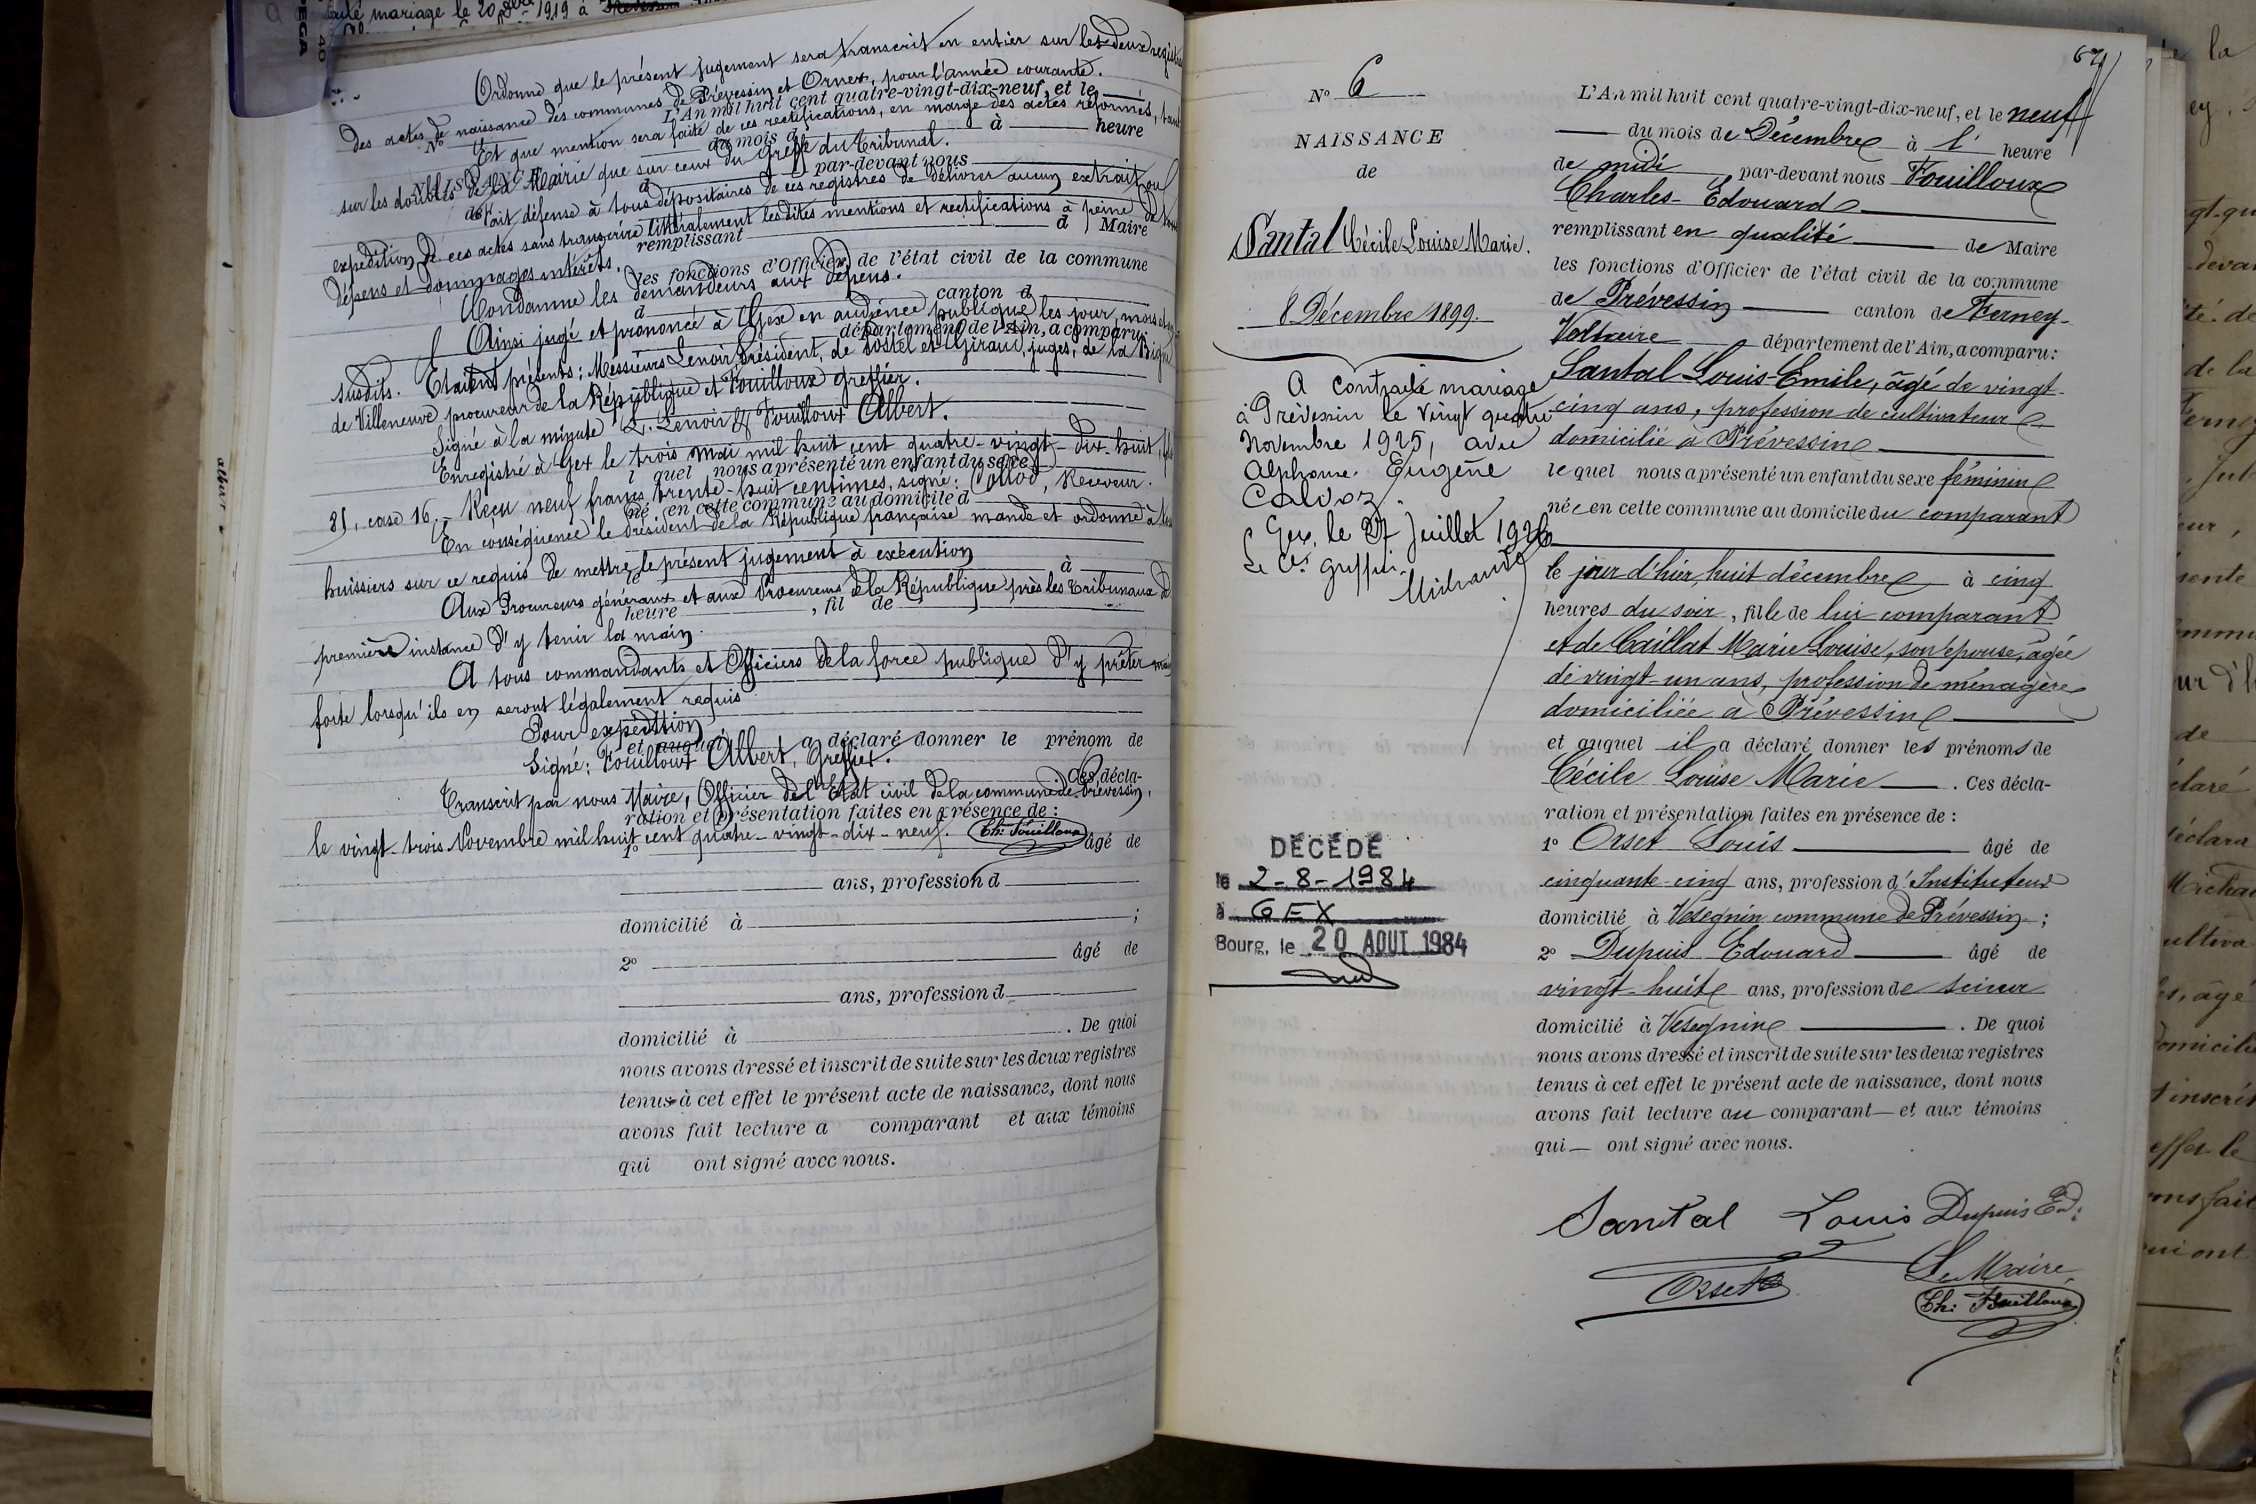 Ordonne que le présent jugement sera transcrit en entier sur les deux
des actes de naissance des communes de Prévessin et Ornex, pour l'année courante.
L'An mil huit cent quatre-vingt-dix-neuf, et le
Et que mention sera faite de ces rectifications, en marge des actes réformés,
No
du mois d
à heure
sur les doubles de la Mairie que sur ceux du Greffe du Tribunal.
NAISSANCE
de
par-devant nous
Fait défense à tous dépositaires de ces registres de délivrer aucun extrait ou
expédition de ces actes sans transcrire littéralement lesdites mentions et rectifications à peine de tous
remplissant
d Maire
dépens et dommages intérêts.
les fonctions d'Officier de l'état civil de la commune
Condamne les demandeurs aux dépens.
d canton d
Ainsi jugé et prononcé à Gex en audience publique les jour, mois et an
département de l'Ain, a comparu:
susdits. Etaient présents: Messieurs Lenoir Président, de et Giraud, juges, de la
de Villeneuve procureur de la République et Fouilloux greffier.
Signé à la minute L. Lenoir & Fouilloux Albert.
Enregistré à Gex le trois mai mil huit cent quatre-vingt-dix-huit,
l quel nous a présenté un enfant du sexe
81, case 16. Reçu neuf francs trente-huit centimes, signé: Receveur.
né en cette commune au domicile d
En conséquence le Président de la République française mande et ordonne à tous
huissiers sur ce requis de mettre le présent jugement à exécution
à
Aux Procureurs généraux et aux Procureurs de la République près les Tribunaux de
heure , fil de
première instance d'y tenir la main.
A tous commandants et Officiers de la force publique d'y prêter main
forte lorsqu'ils en seront légalement requis
Pour expédition
et auquel a déclaré donner le prénom de
Signé: Fouilloux Albert, Greffier.
Ces décla-
Transcrit par nous Maire, Officier de l'Etat civil de la commune de Prévessin,
ration et présentation faites en présence de :
le vingt-trois Novembre mil huit cent quatre-vingt-dix-neuf. Ch: Fouilloux
1º âgé de
ans, profession d
domicilié à ;
2º âgé de
ans, profession d
domicilié à . De quoi
nous avons dressé et inscrit de suite sur les deux registres
tenus à cet effet le présent acte de naissance, dont nous
avons fait lecture a comparant et aux témoins
qui ont signé avec nous.
67
Nº 6
NAISSANCE
de
Santal Cécile Louise Marie.
8 Décembre 1899.
A contracté mariage
à Prévessin le vingt quatre
Novembre 1925, avec
Alphonse Eugène
CALVOZ.
Gex, le 27 Juillet 1926
Le Cis greffier.
DÉCÉDÉ
le 2-8-1984
à GEX
Bourg, le 20 AOUT 1984
L'An mil huit cent quatre-vingt-dix-neuf, et le neuf
du mois de Décembre à 1' heure
de midi par-devant nous Fouilloux
Charles-Edouard
remplissant en qualité de Maire
les fonctions d'Officier de l'état civil de la commune
de Prévessin canton de Ferney-
Voltaire département de l'Ain, a comparu:
Santal Louis-Emile, âgé de vingt-
cinq ans, profession de cultivateur
domicilié à Prévessin
le quel nous a présenté un enfant du sexe féminin
née en cette commune au domicile du comparant
le jour d'hier, huit décembre à cinq
heures du soir, fille de lui comparant
et de Caillat Marie Louise, son épouse, âgée
de vingt-un ans, profession de ménagère
domiciliée à Prévessin
et auquel il a déclaré donner les prénoms de
Cécile Louise Marie . Ces décla-
ration et présentation faites en présence de :
1º Orset Louis âgé de
cinquante-cinq ans, profession d'Instituteur
domicilié à Vésegnin commune de Prévessin ;
2º Dupuis Edouard âgé de
vingt-huit ans, profession de scieur
domicilié à Vésegnin . De quoi
nous avons dressé et inscrit de suite sur les deux registres
tenus à cet effet le présent acte de naissance, dont nous
avons fait lecture au comparant et aux témoins
qui ont signé avec nous.
Santal Louis Dupuis Ed:
Orset
Le Maire,
Ch: Fouilloux